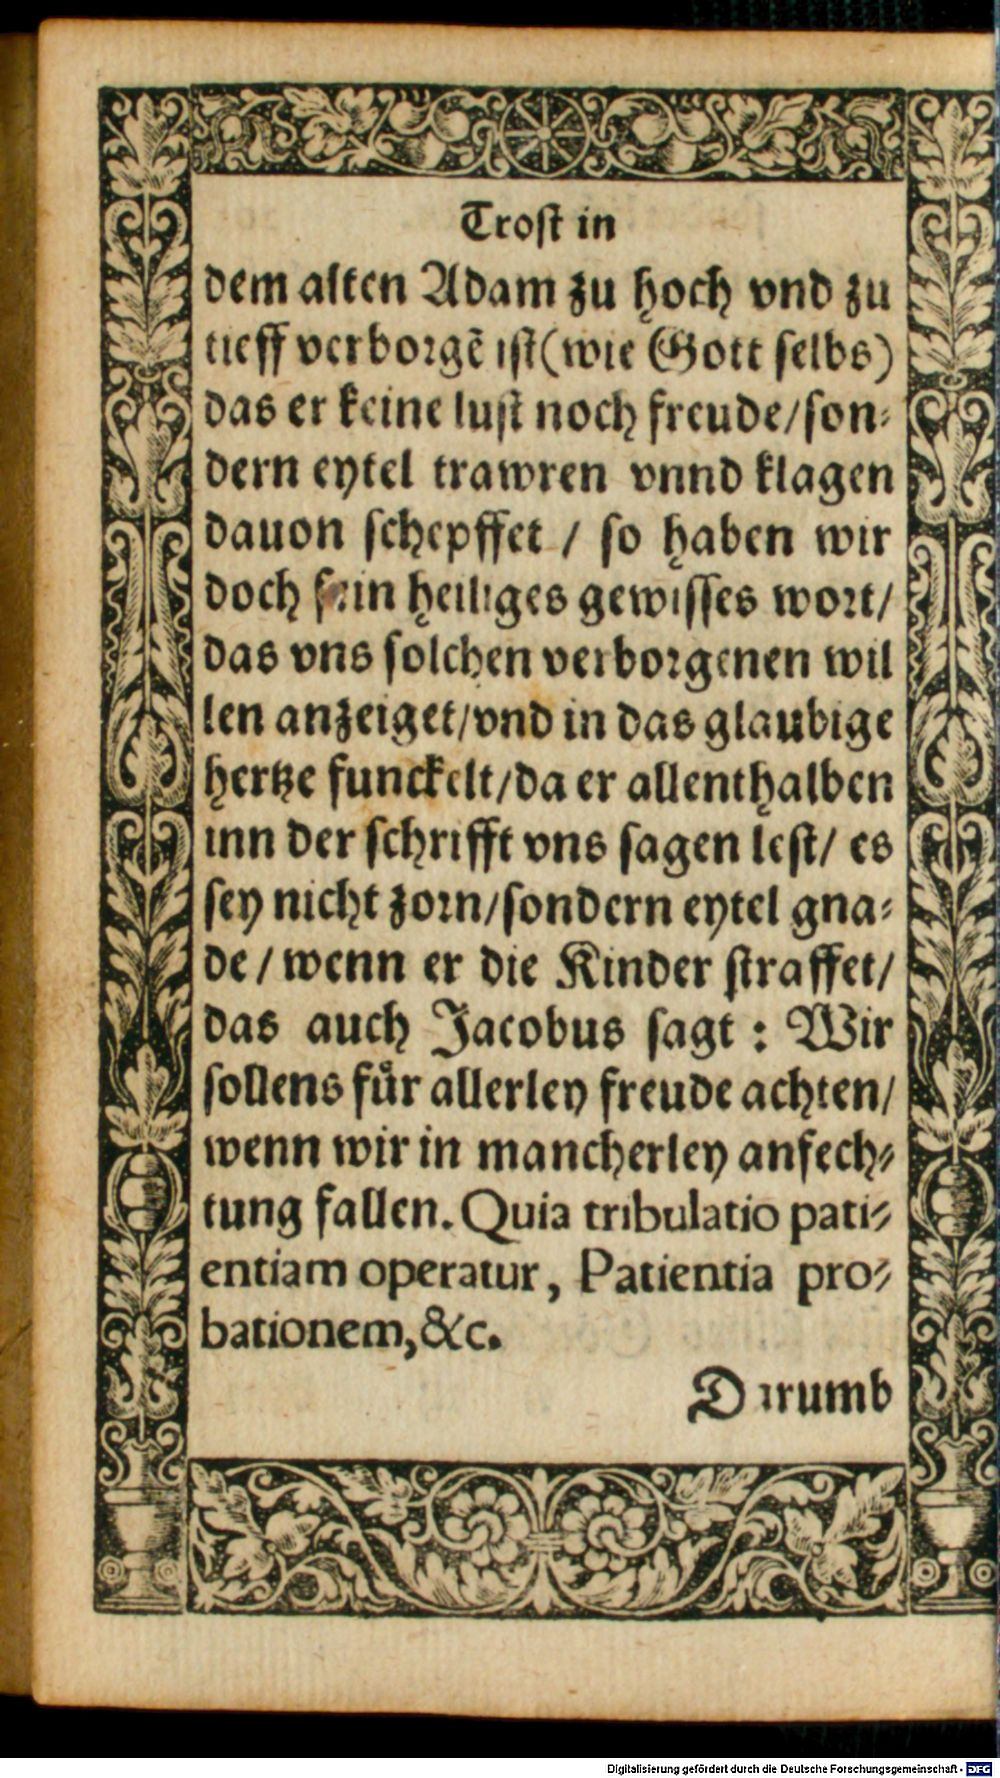 Trost in
dem alten Adam zu hoch vnd zu
tieff verborgẽ ist(wie Gott selbs)
das er keine lust noch freude/son-
dern eytel trawren vnnd klagen
dauon schepffet / so haben wir
doch sein heiliges gewisses wort/
das vns solchen verborgenen wil
len anzeiget/vnd in das glaubige
hertze funckelt/da er allenthalben
inn der schrifft vns sagen lest/ es
sey nicht zorn/sondern eytel gna-
de / wenn er die Kinder straffet/
das auch Jacobus sagt : Wir
sollens fuͤr allerley freude achten/
wenn wir in mancherley anfech-
tung fallen. Quia tribulatio pati-
entiam operatur, Patientia pro-
bationem,&c.
Darumb
Digitalisierung gefördert durch die Deutsche Forschungsgemeinschaft - DFG